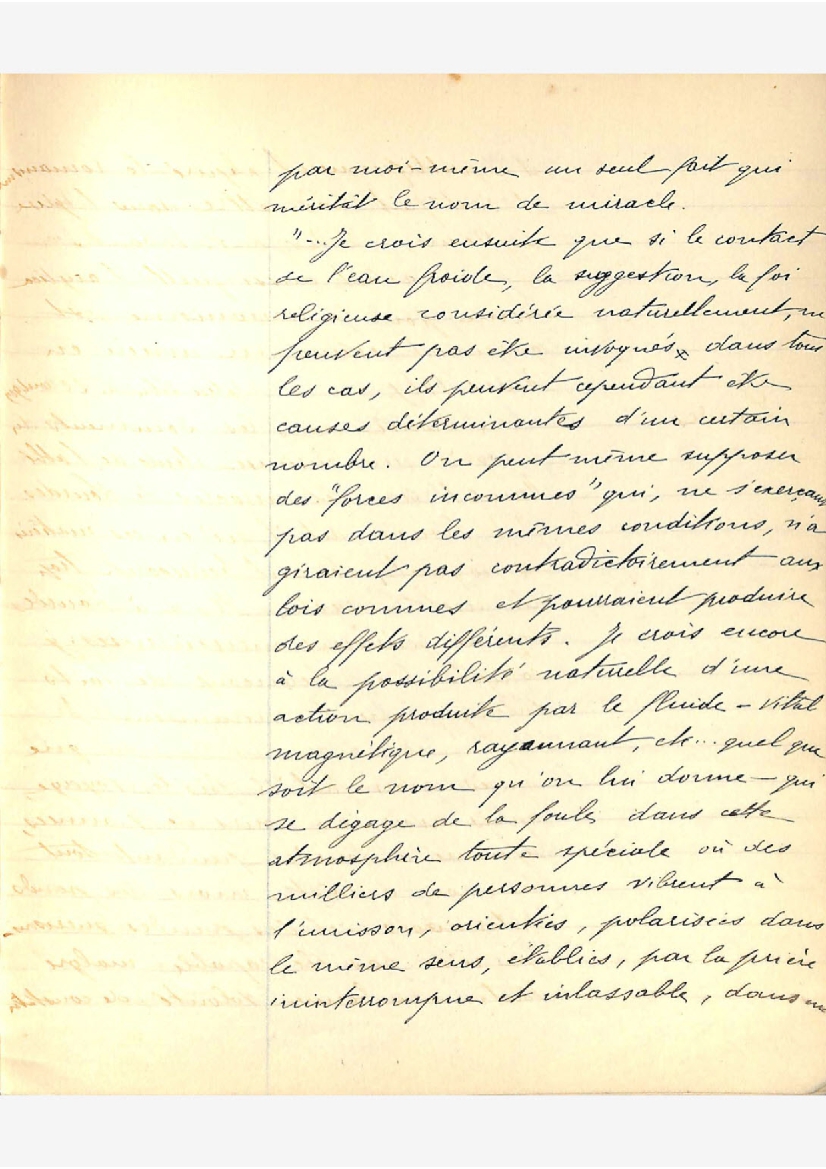 par moi-même un seul fait qui
méritât le nom de miracle.
"...Je crois ensuite que si le contact
de l'eau froide, la suggestion, la foi
religieuse considérée naturellement, ne
peuvent pas être invoqués dans tous
les cas, ils peuvent cependant être
causes déterminantes d'un certain
nombre. On peut même supposer
des "forces inconnues" qui, ne s'exerçant
pas dans les mêmes conditions, n'a
giraient pas contradictoirement aux
lois connues et pourraient produire
des effets différents. Je crois encore
à la possibilité naturelle d'une
action produite par le fluide - vital
magnétique, rayonnant, etc... quel que
soit le nom qu'on lui donne - qui
se dégage de la foule dans cette
atmosphère toute spéciale où des
milliers de personnes vibrent à
l'unisson, orientées, polarisées dans
le même sens, établies, par la prière
ininterrompue et inlassable, dans